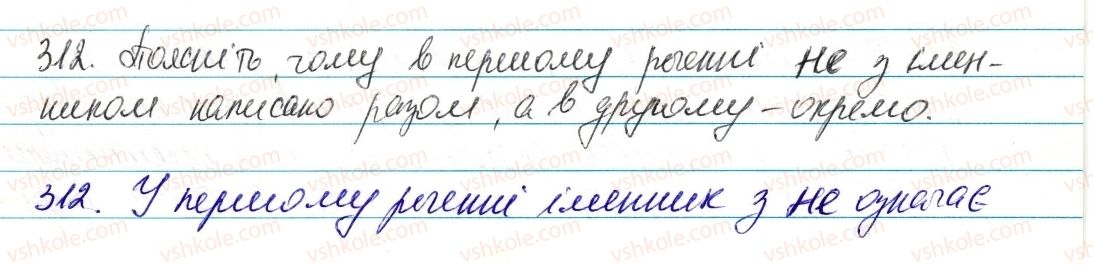 312. Поясніть, чому в першому реченні не з імен-
ником написано разом, а в другому – окремо.
312. У першому реченні іменник з не означає